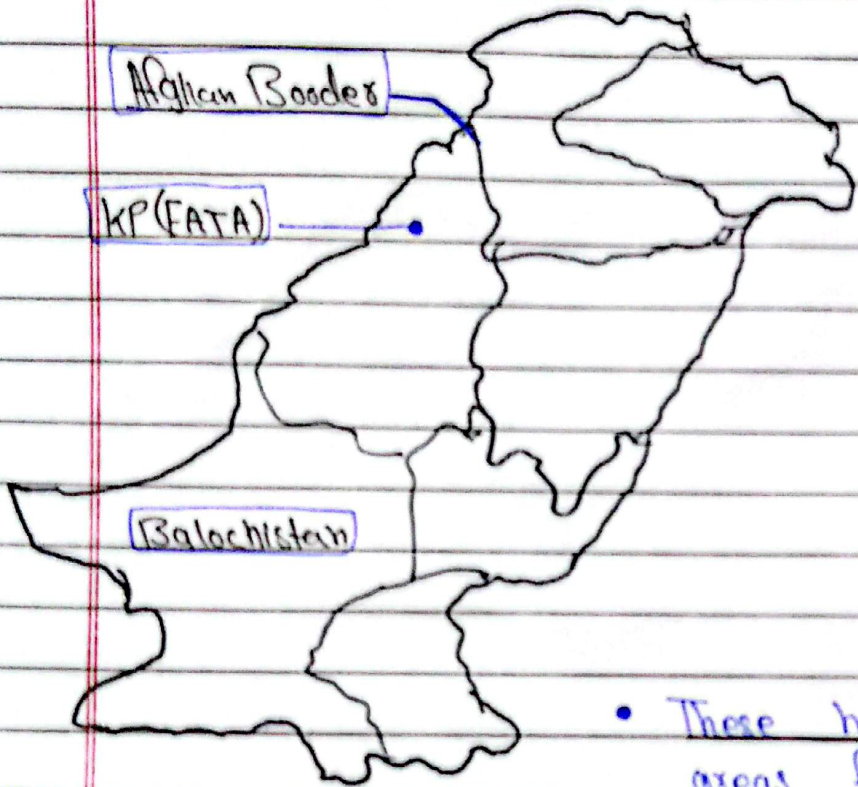 Afghan Booder
KP(FATA)
Balochistan
• These h
areas f